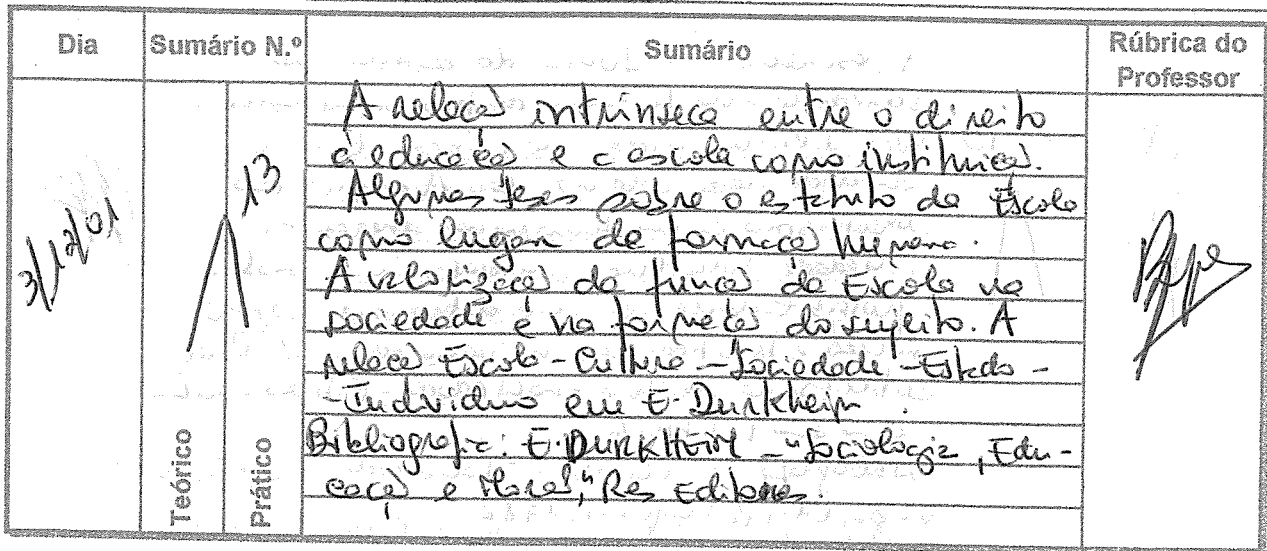 Dia
Sumário N.º
Sumário
Rúbrica do
Professor
3/12/01
13
Teórico
Prático
A relação intrínseca entre o direito
à educação e a escola como instituição.
Algumas teses sobre o estatuto da Escola
como lugar de formação humana.
A valorização da função da Escola na
sociedade e na formação do sujeito. A
relação Escola - Cultura - Sociedade - Estado -
- Indivíduo em E. Durkheim.
Bibliografia: E. DURKHEIM - "Sociologia, Edu-
cação e Moral", Res Editores.